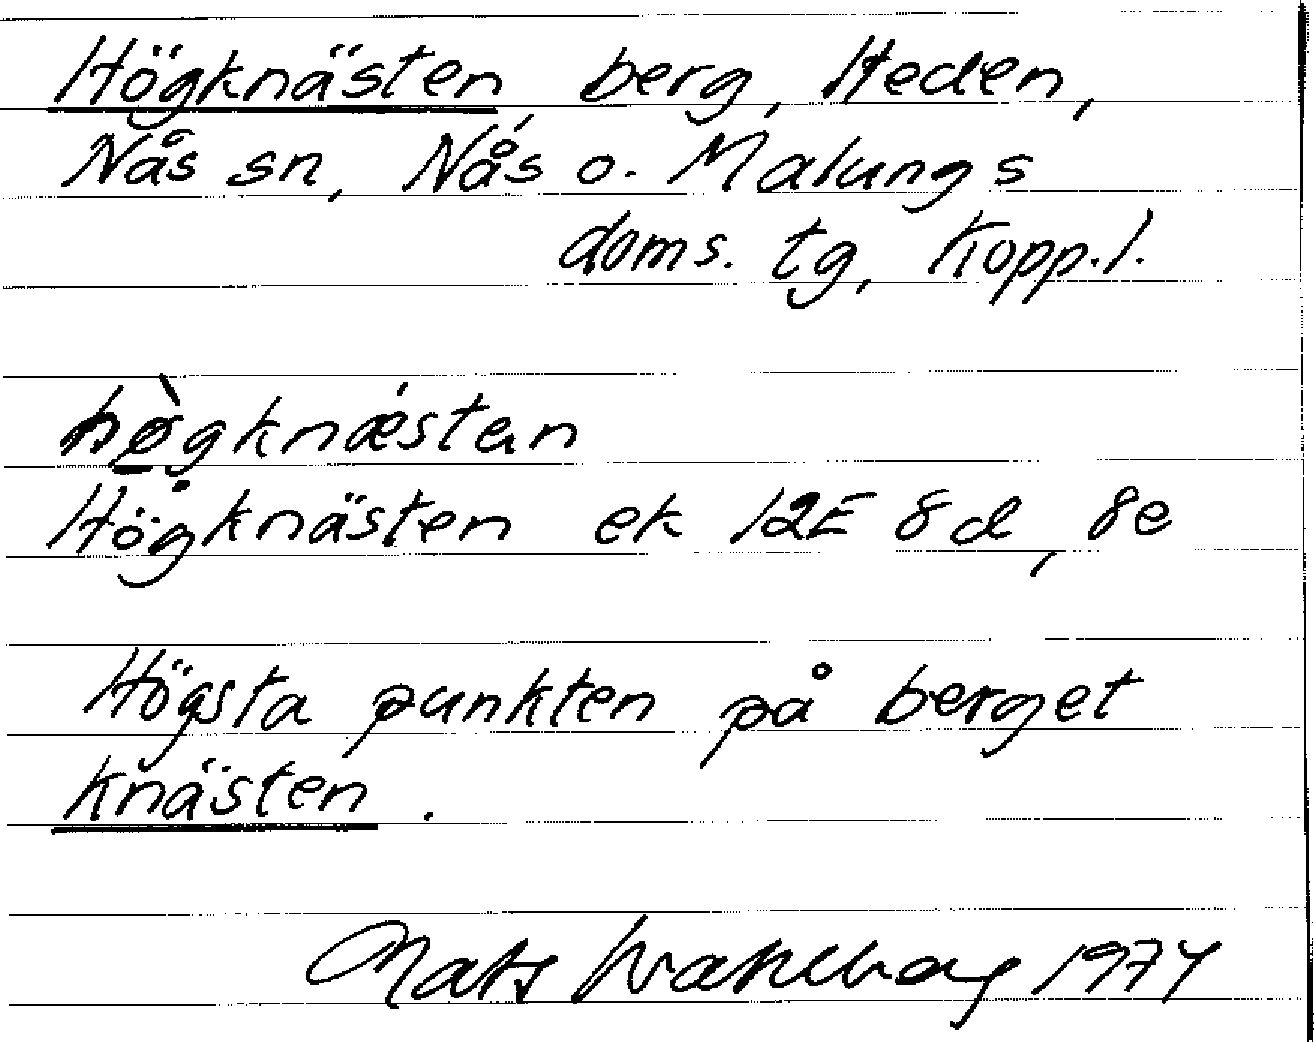 Högknästen berg, Heden,
Nås sn, Nås o. Malungs
doms. tg, Kopp. l.
hø̀gknǽstan
Högknästen ek 12E 8d, 8e
Högsta punkten på berget
Knästen.
Mats Wahlberg 1974